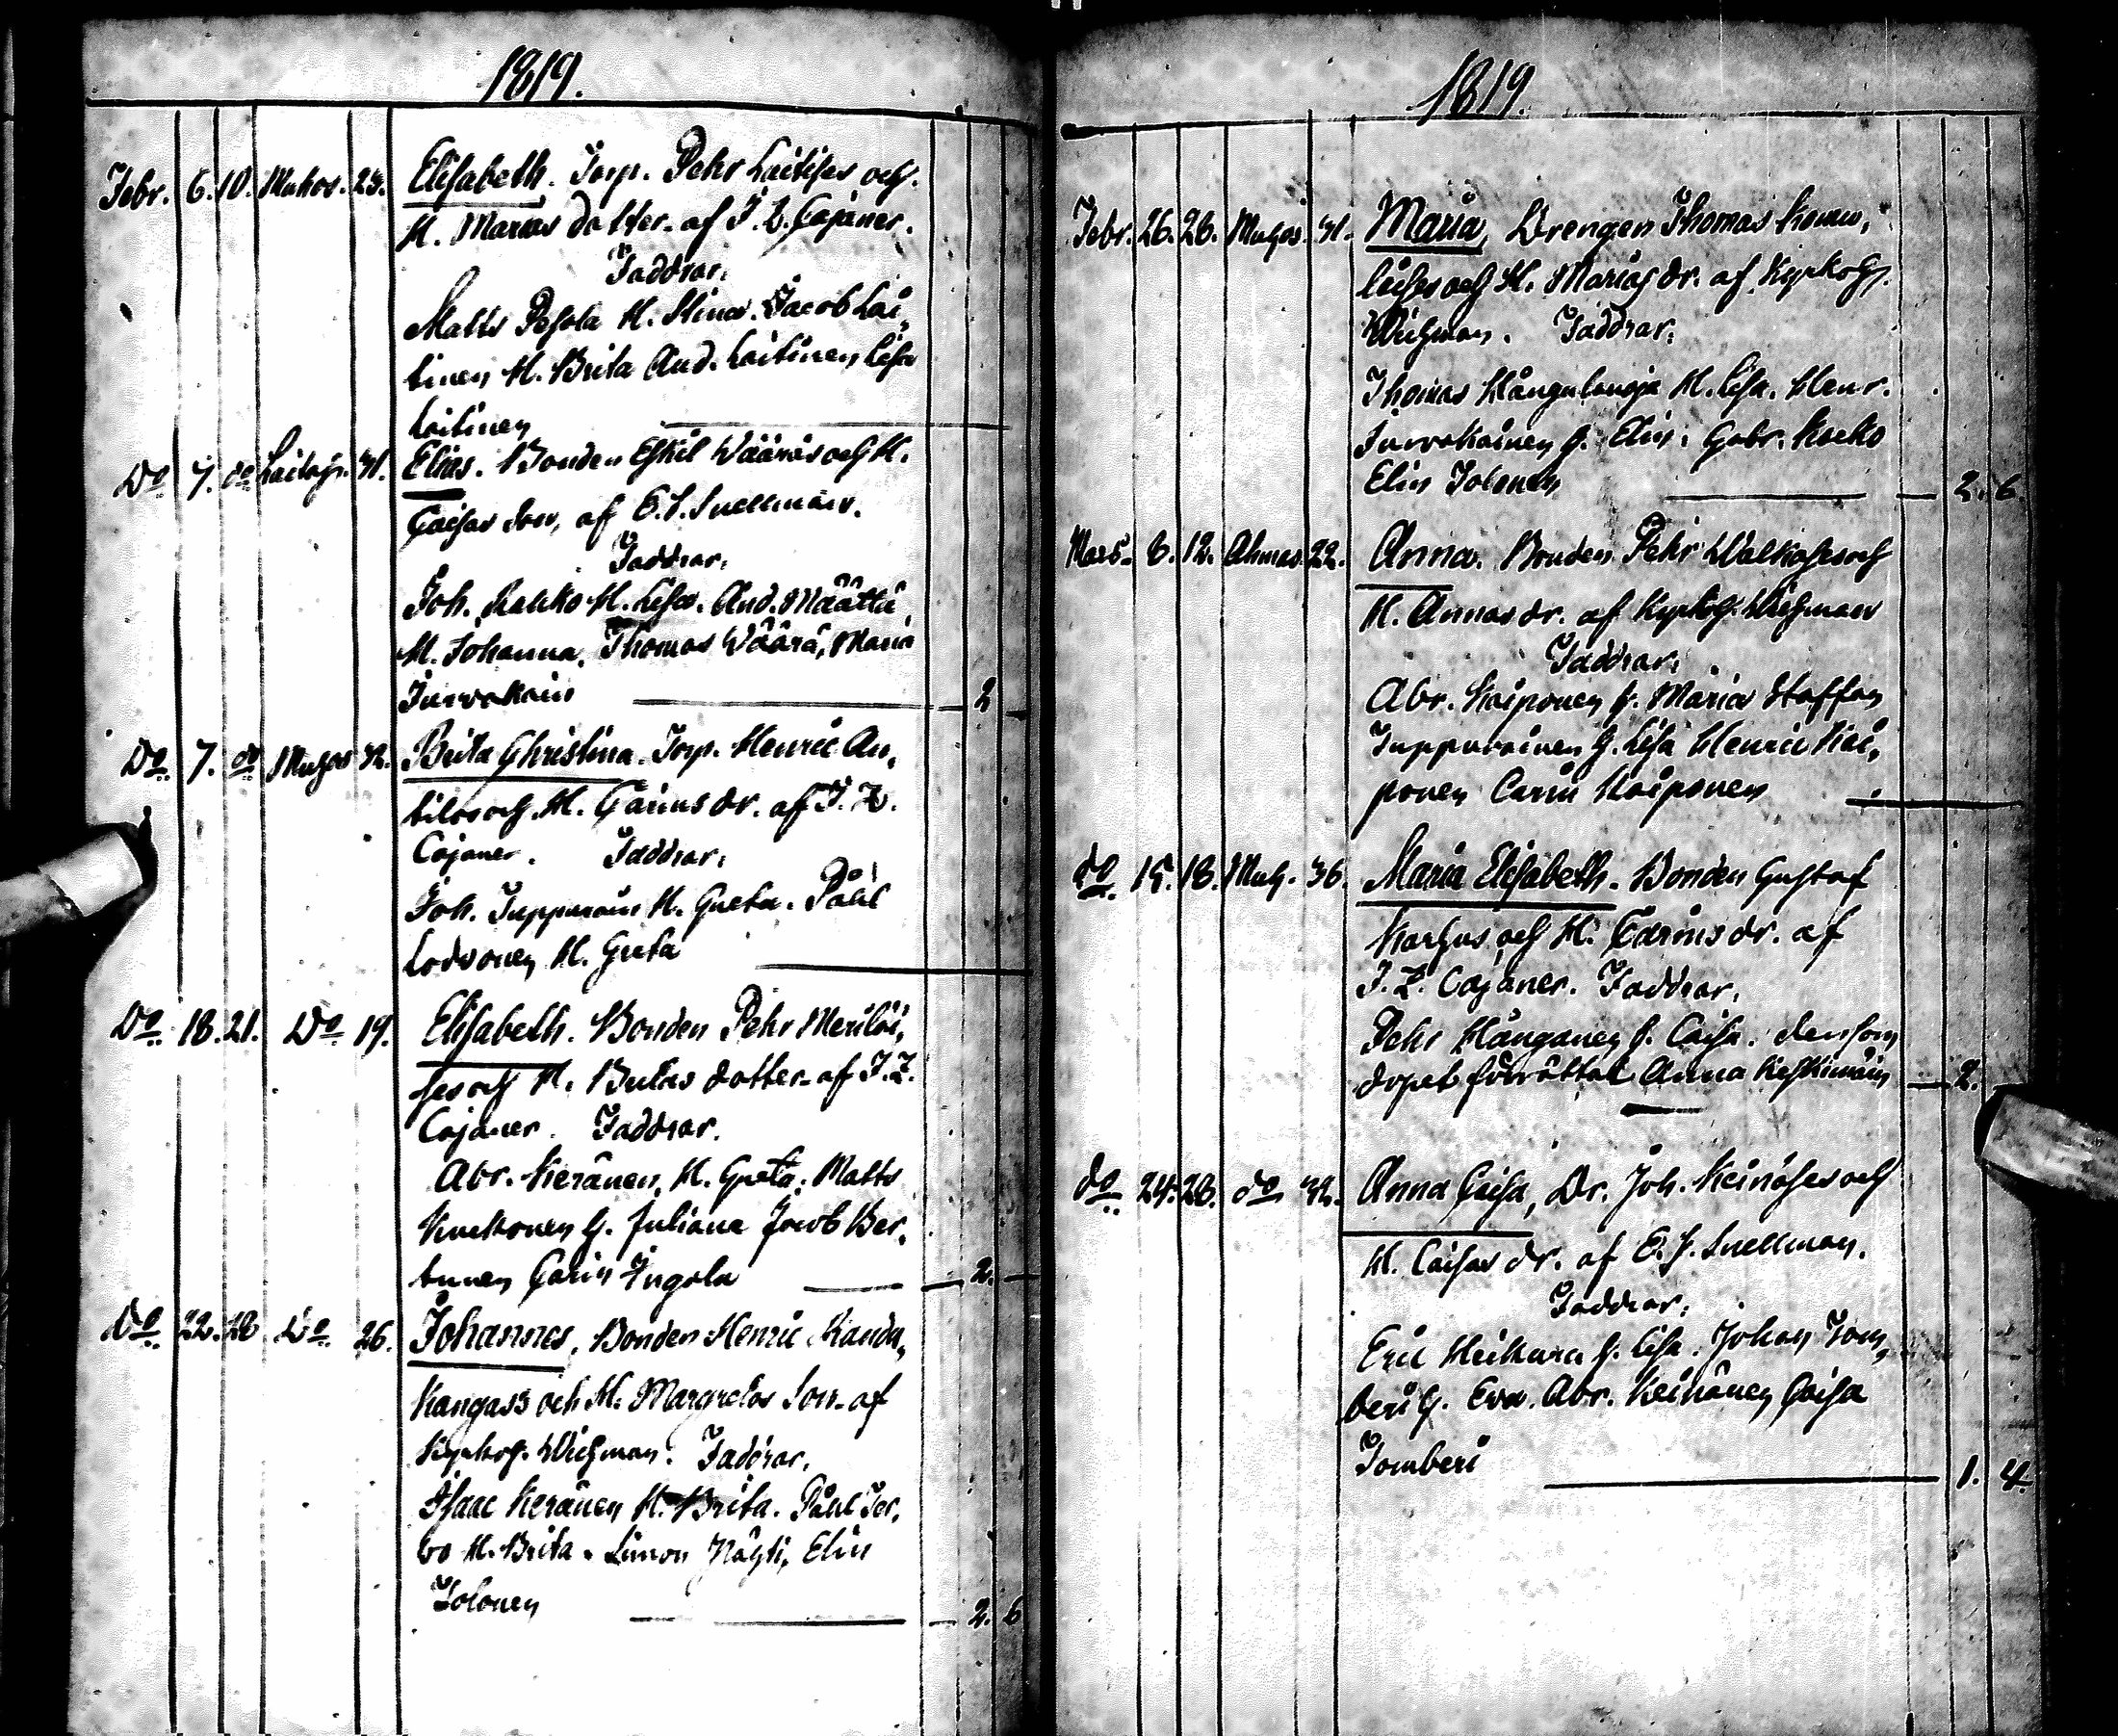 1819.
Febr. 6. 10. Muhos. 23. Elisabeth. Torp. Pehr Laitises och
H. Marias dotter. af J. Z. Cajaner.
Faddrar.
Matts Pesola H. Stina. Jacob Lai,
tinen H. Brita And. Laitinen Lisa
Laitinen
Do 7. do 31. Elias. Bonden Eskil Wääräs och H.
Caisas son, af E. S. Snellman.
Faddrar.
Joh. H. Lisa. And. Määttä
H. Johanna. Thomas Väärä, Maria
Jurvakain 2
Do. 7. do Muhos 32. Brita Christina. Torp. Henric An,
tilas och H. Carins dr. af J. Z.
Cajaner. Faddrar.
Joh. Juppurain H. Greta. Påhl
H. Greta
Do. 18. 21. Do 19. Elisabeth. Bonden Pehr Meriläi,
ses och H. Britas dotter. af J. Z.
Cajaner. Faddrar.
Abr. Keränen, H. Greta. Matts
Kuckonen H. Juliana Jacob Ker,
tunen Carin Ingola 2.
Do. 22. 28 Do. 26. Johannes, Bonden Henric Kandu,
Kangass och H. Margretas Son. af
Kyrkoh. Wichman. Faddrar.
Isaac Keränen H. Brita. Påhl Ter,
vo H. Brita. Simon Näyti, Elin
Tolonen 2. 6
1819.
Febr. 26. 28. Muhos. 31. Maria, Drengen Thomas
och H. Marias dr. af Kyrkoh.
Wichman. Faddrar.
Thomas H. Lisa. Henr.
Jurvakainen H. Elin. Gabr. Kocko
Elin Tolonen 2. 6
Mars. 6. 12. Ahmas. 22. Anna. Bonden Pehr Walkoses och
H. Annas dr. af Kyrkoh. Wichman
Faddrar.
Abr. Kaiponen H. Maria Staffan
Juppurainen H. Lisa Henric Kai,
ponen Carin Kaiponen
do. 15. 18. Muh. 36. Maria Elisabeth. Bonden Gustaf
Karhus och H. Carins dr. af
J. Z. Cajaner. Faddrar.
Pehr Kånganen H. Caisa. den som
dopet förrättat Anna Keskimäin 2.
do. 24. 28. do 32. Anna Caisa, Dr. Joh. Keinäses och
H. Caisas dr. af E. S. Snellman.
Faddrar.
Eric Heikura H. Lisa. Johan Tom,
beri H. Eva. Abr. Keinänen Caisa
Tomberi 1. 4.